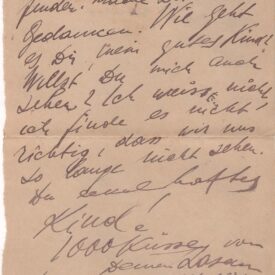 Gedanken. Wie geht
es Dir, mein gutes Kind?
Willst Du mich auch
sehen? Ich weiss nicht,
ich finde es nicht
richtig, dass wir uns
so lange nicht sehen.
Du
Kind!
1000 Küsse von
Deinem